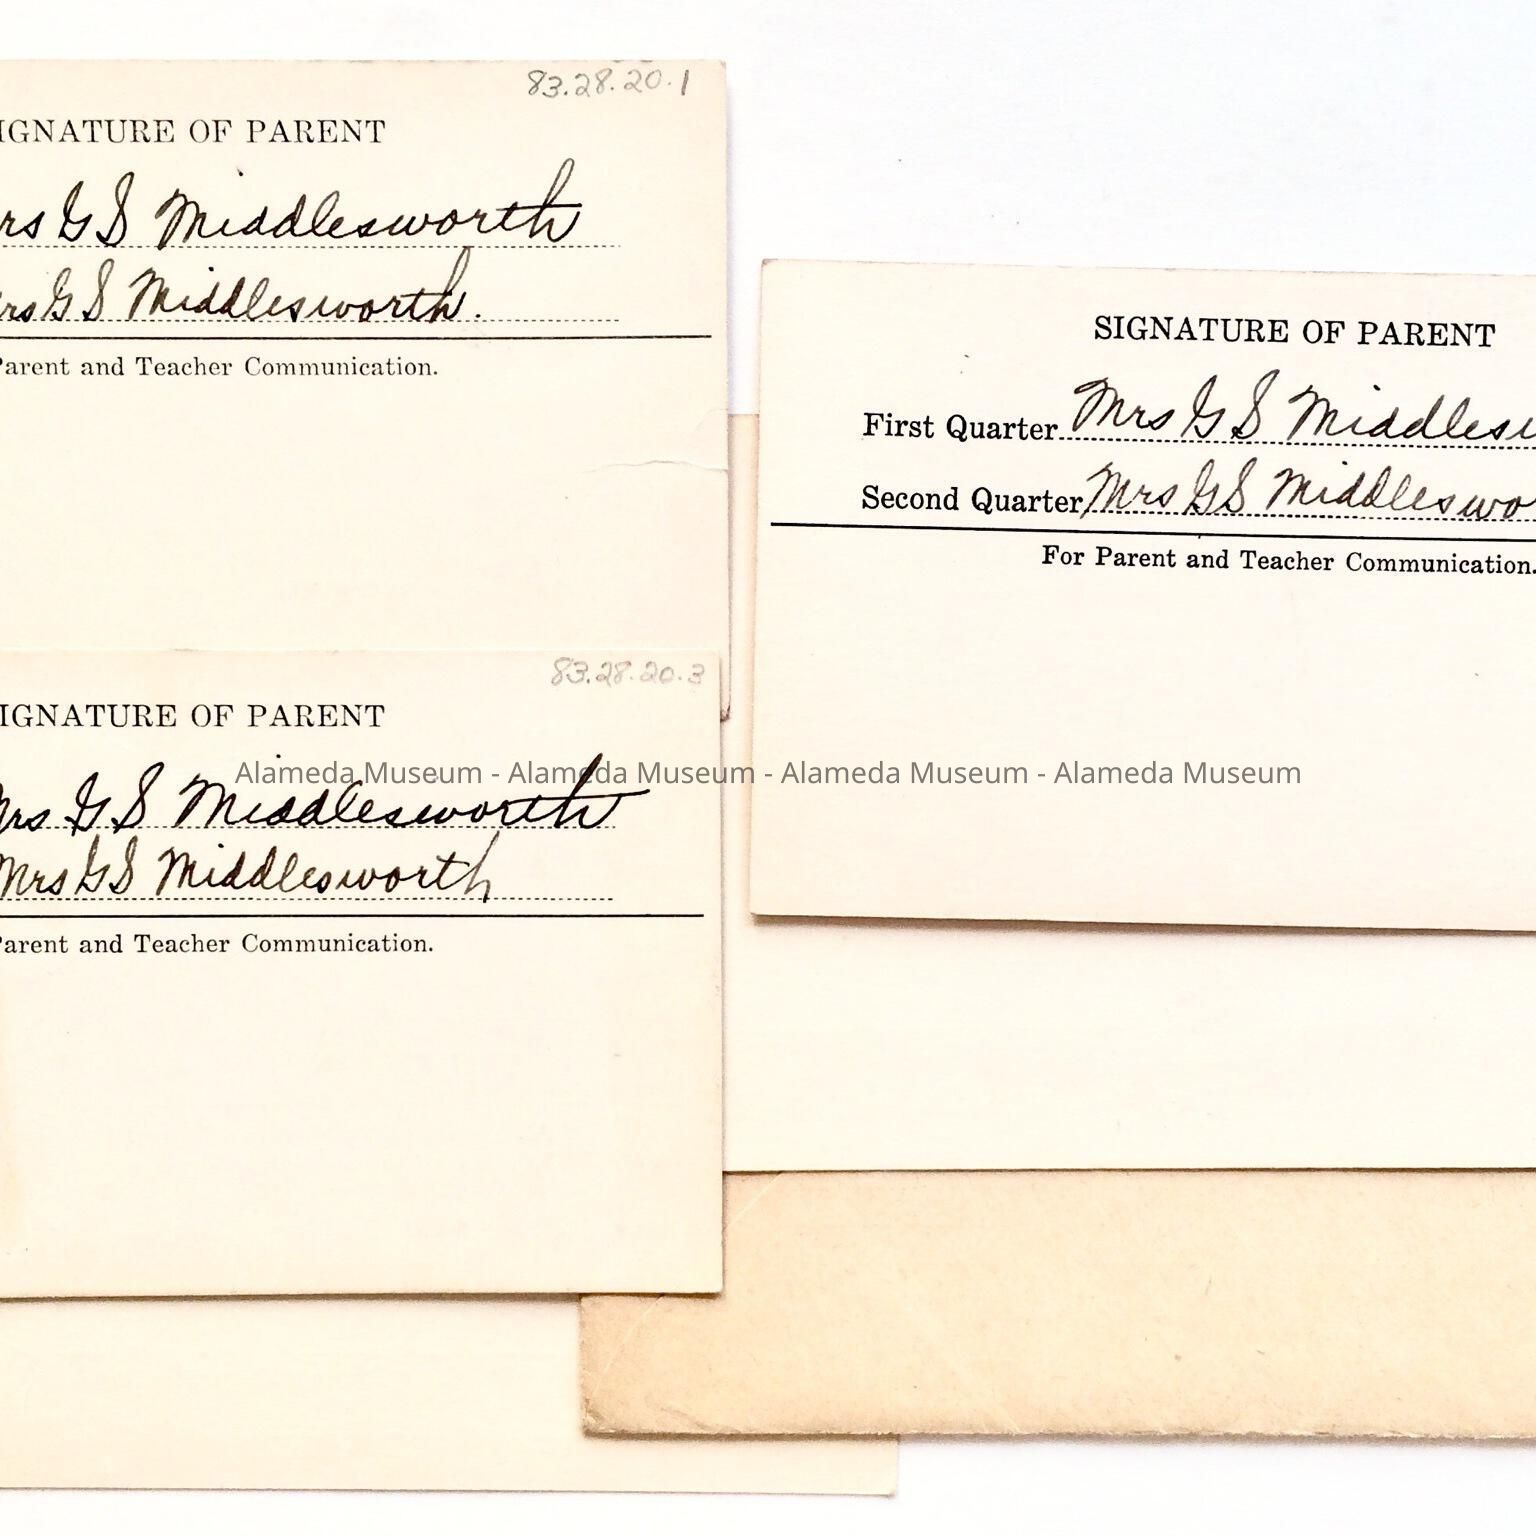 83.28.20.1
IGNATURE OF PARENT
rs G S Middlesworth
rs G S Middlesworth.
Parent and Teacher Communication.
83.28.20.3
IGNATURE OF PARENT
Mrs G S Middlesworth
Mrs G S Middlesworth
Parent and Teacher Communication.
SIGNATURE OF PARENT
First Quarter Mrs G S Middlesw
Second Quarter Mrs G S Middleswor
For Parent and Teacher Communication.
Alameda Museum - Alameda Museum - Alameda Museum - Alameda Museum